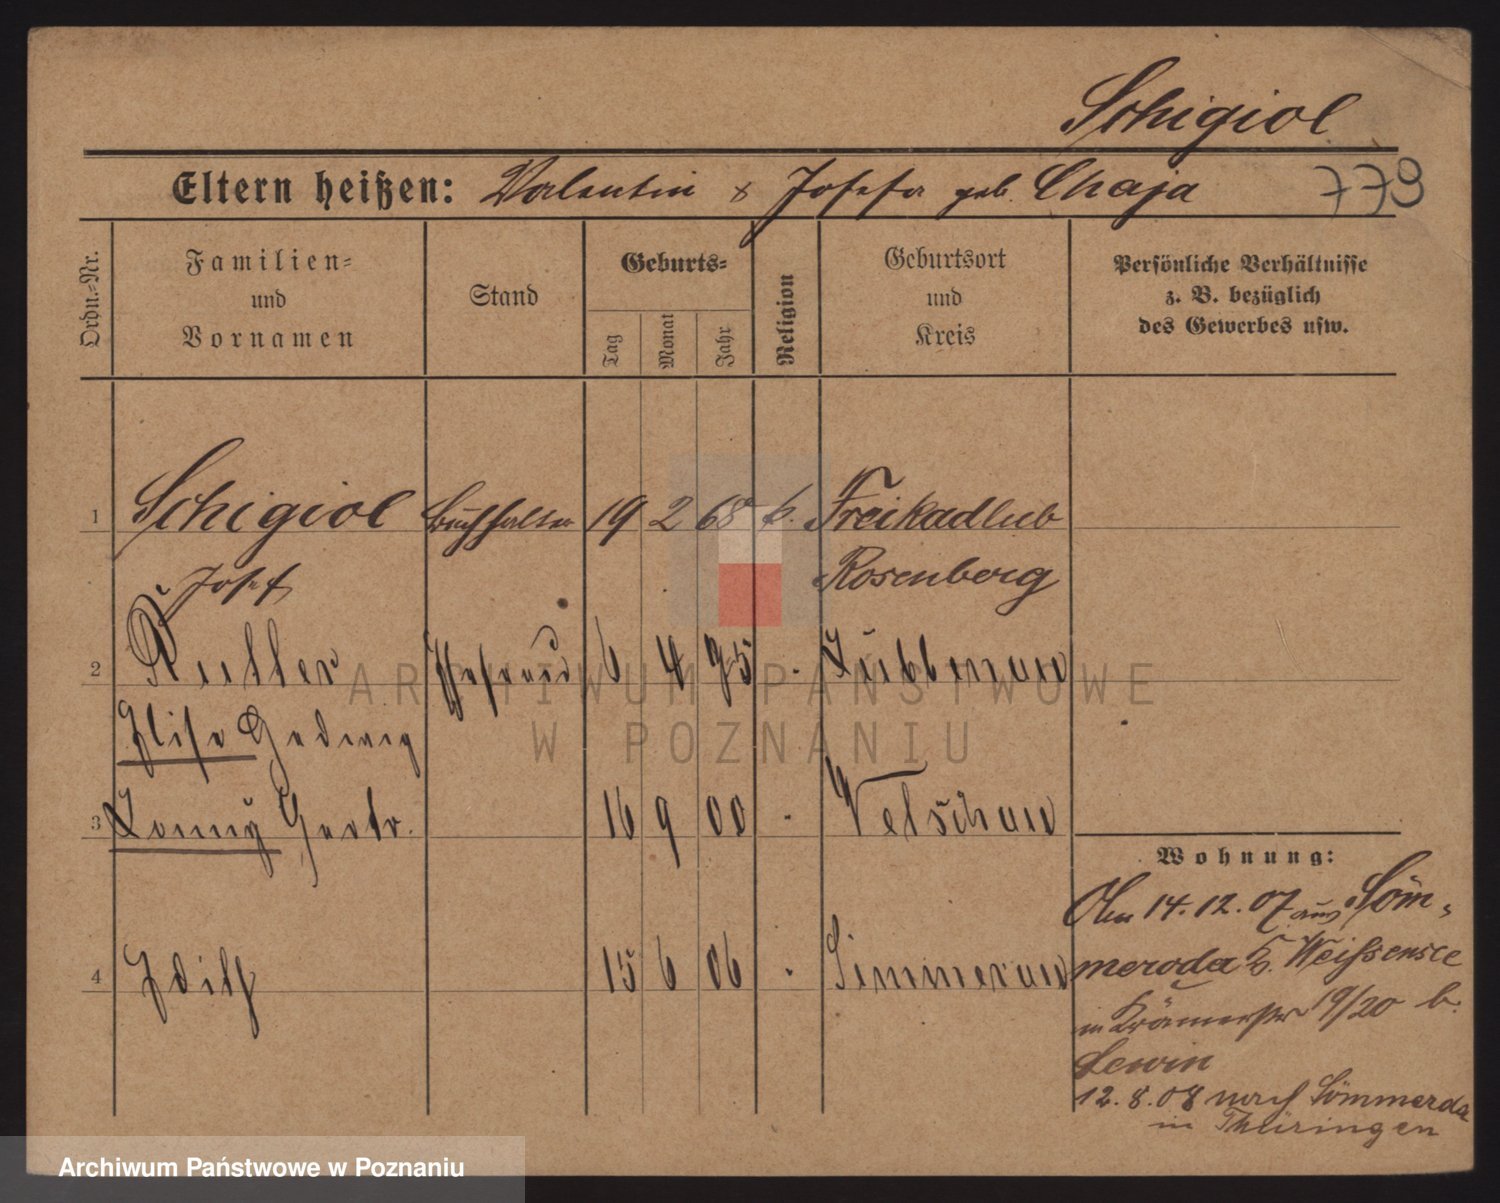 Schigiol
Eltern heißen: Valentin & Josefa geb. Chaja
779
Ordn.-Nr.
Familien-
und
Vornamen
Stand
Geburts-
Tag
Monat
Jahr
Religion
Geburtsort
und
Kreis
Persönliche Verhältnisse
z. B. bezüglich
des Gewerbes usw.
1 Schigiol Buchhalter 19 2 68 k. Freikadlub
Josef Rosenberg
2 Ehefrau 6 4 75 - Lübbenau
Elise Hedwig
3 Gertr. 16 9 00 - Vetschau
4 Edith 15 6 06 -
Wohnung:
14.12.07 aus Söm-
meroda K. Weißensee
in Krämerstr 19/20 b.
Lewin
12.8.08 nach Sömmerda
in Thüringen
ARCHIWUM PAŃSTWOWE
W POZNANIU
Archiwum Państwowe w Poznaniu